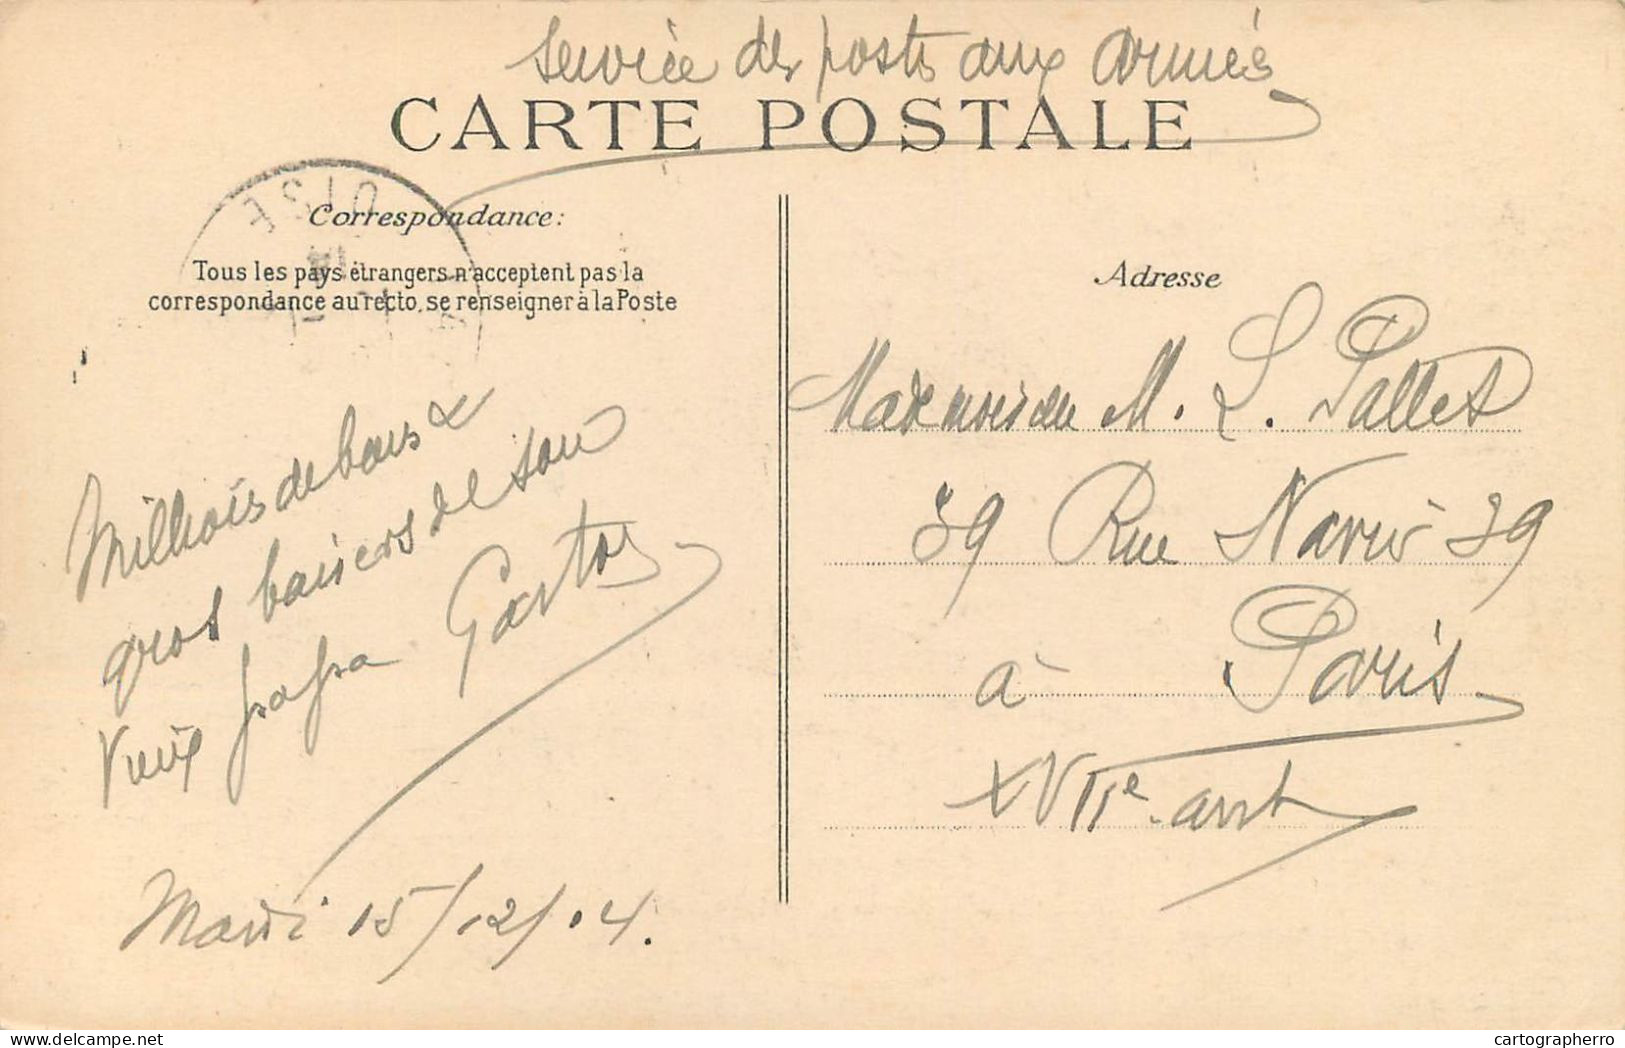 Service des postes aux Armées
CARTE POSTALE
OISE
Correspondance:
Tous les pays étrangers n'acceptent pas la
correspondance au recto, se renseigner à la Poste
Millions de bons &
gros baisers de ton
Vieux papa Gaston
Mardi 15/12/.14.
Adresse
Mademoiselle M. L. Pallet
39 Rue Navier 39
à Paris
XVIIe arrt
cartographerro